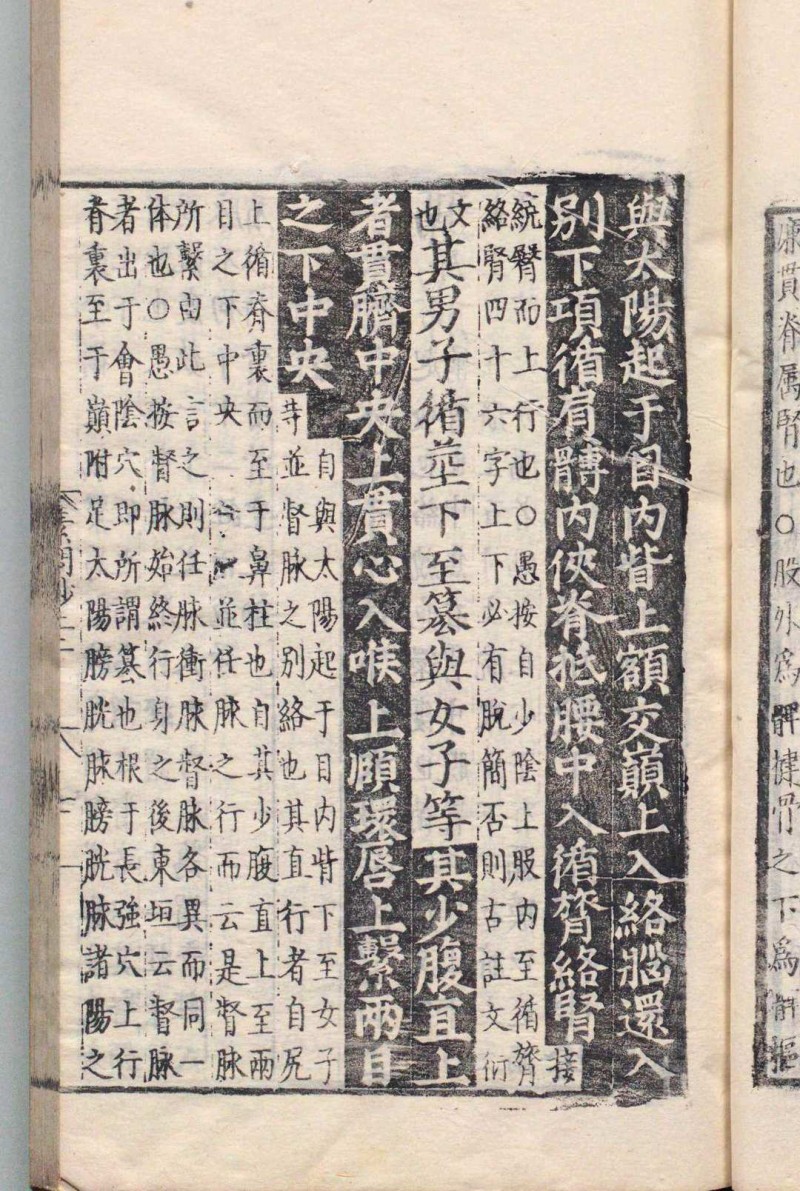 廉貫脊属腎也〇股外爲髀揵骨之下爲髀樞
與太陽起于目内眥上額交巔上入絡腦還入
别下項循肩髆内俠脊抵腰中入循膂絡腎接
統臀而上行也〇愚按自少陰上股内至循膂
絡腎四十六字上下必有脫簡否則古註文衍
文也其男子循莖下至篡與女子等其少腹直上
者貫臍中央上貫心入喉上頤環唇上繫兩目
之下中央
自與太陽起于目内眥下至女子
寺並督脉之别絡也其直行者自尻
上循脊裏而至于鼻柱也自其少腹直上至兩
目之下中央並任脉之行而云是督脉
所繫由此言之則任脉衝脉督脉各異而同一
体也〇愚按督脉始終行身之後東垣云督脉
者出于會陰穴即所謂篡也根于長強穴上行
脊裏至于巔附足太陽膀胱脉膀胱脉諸陽之